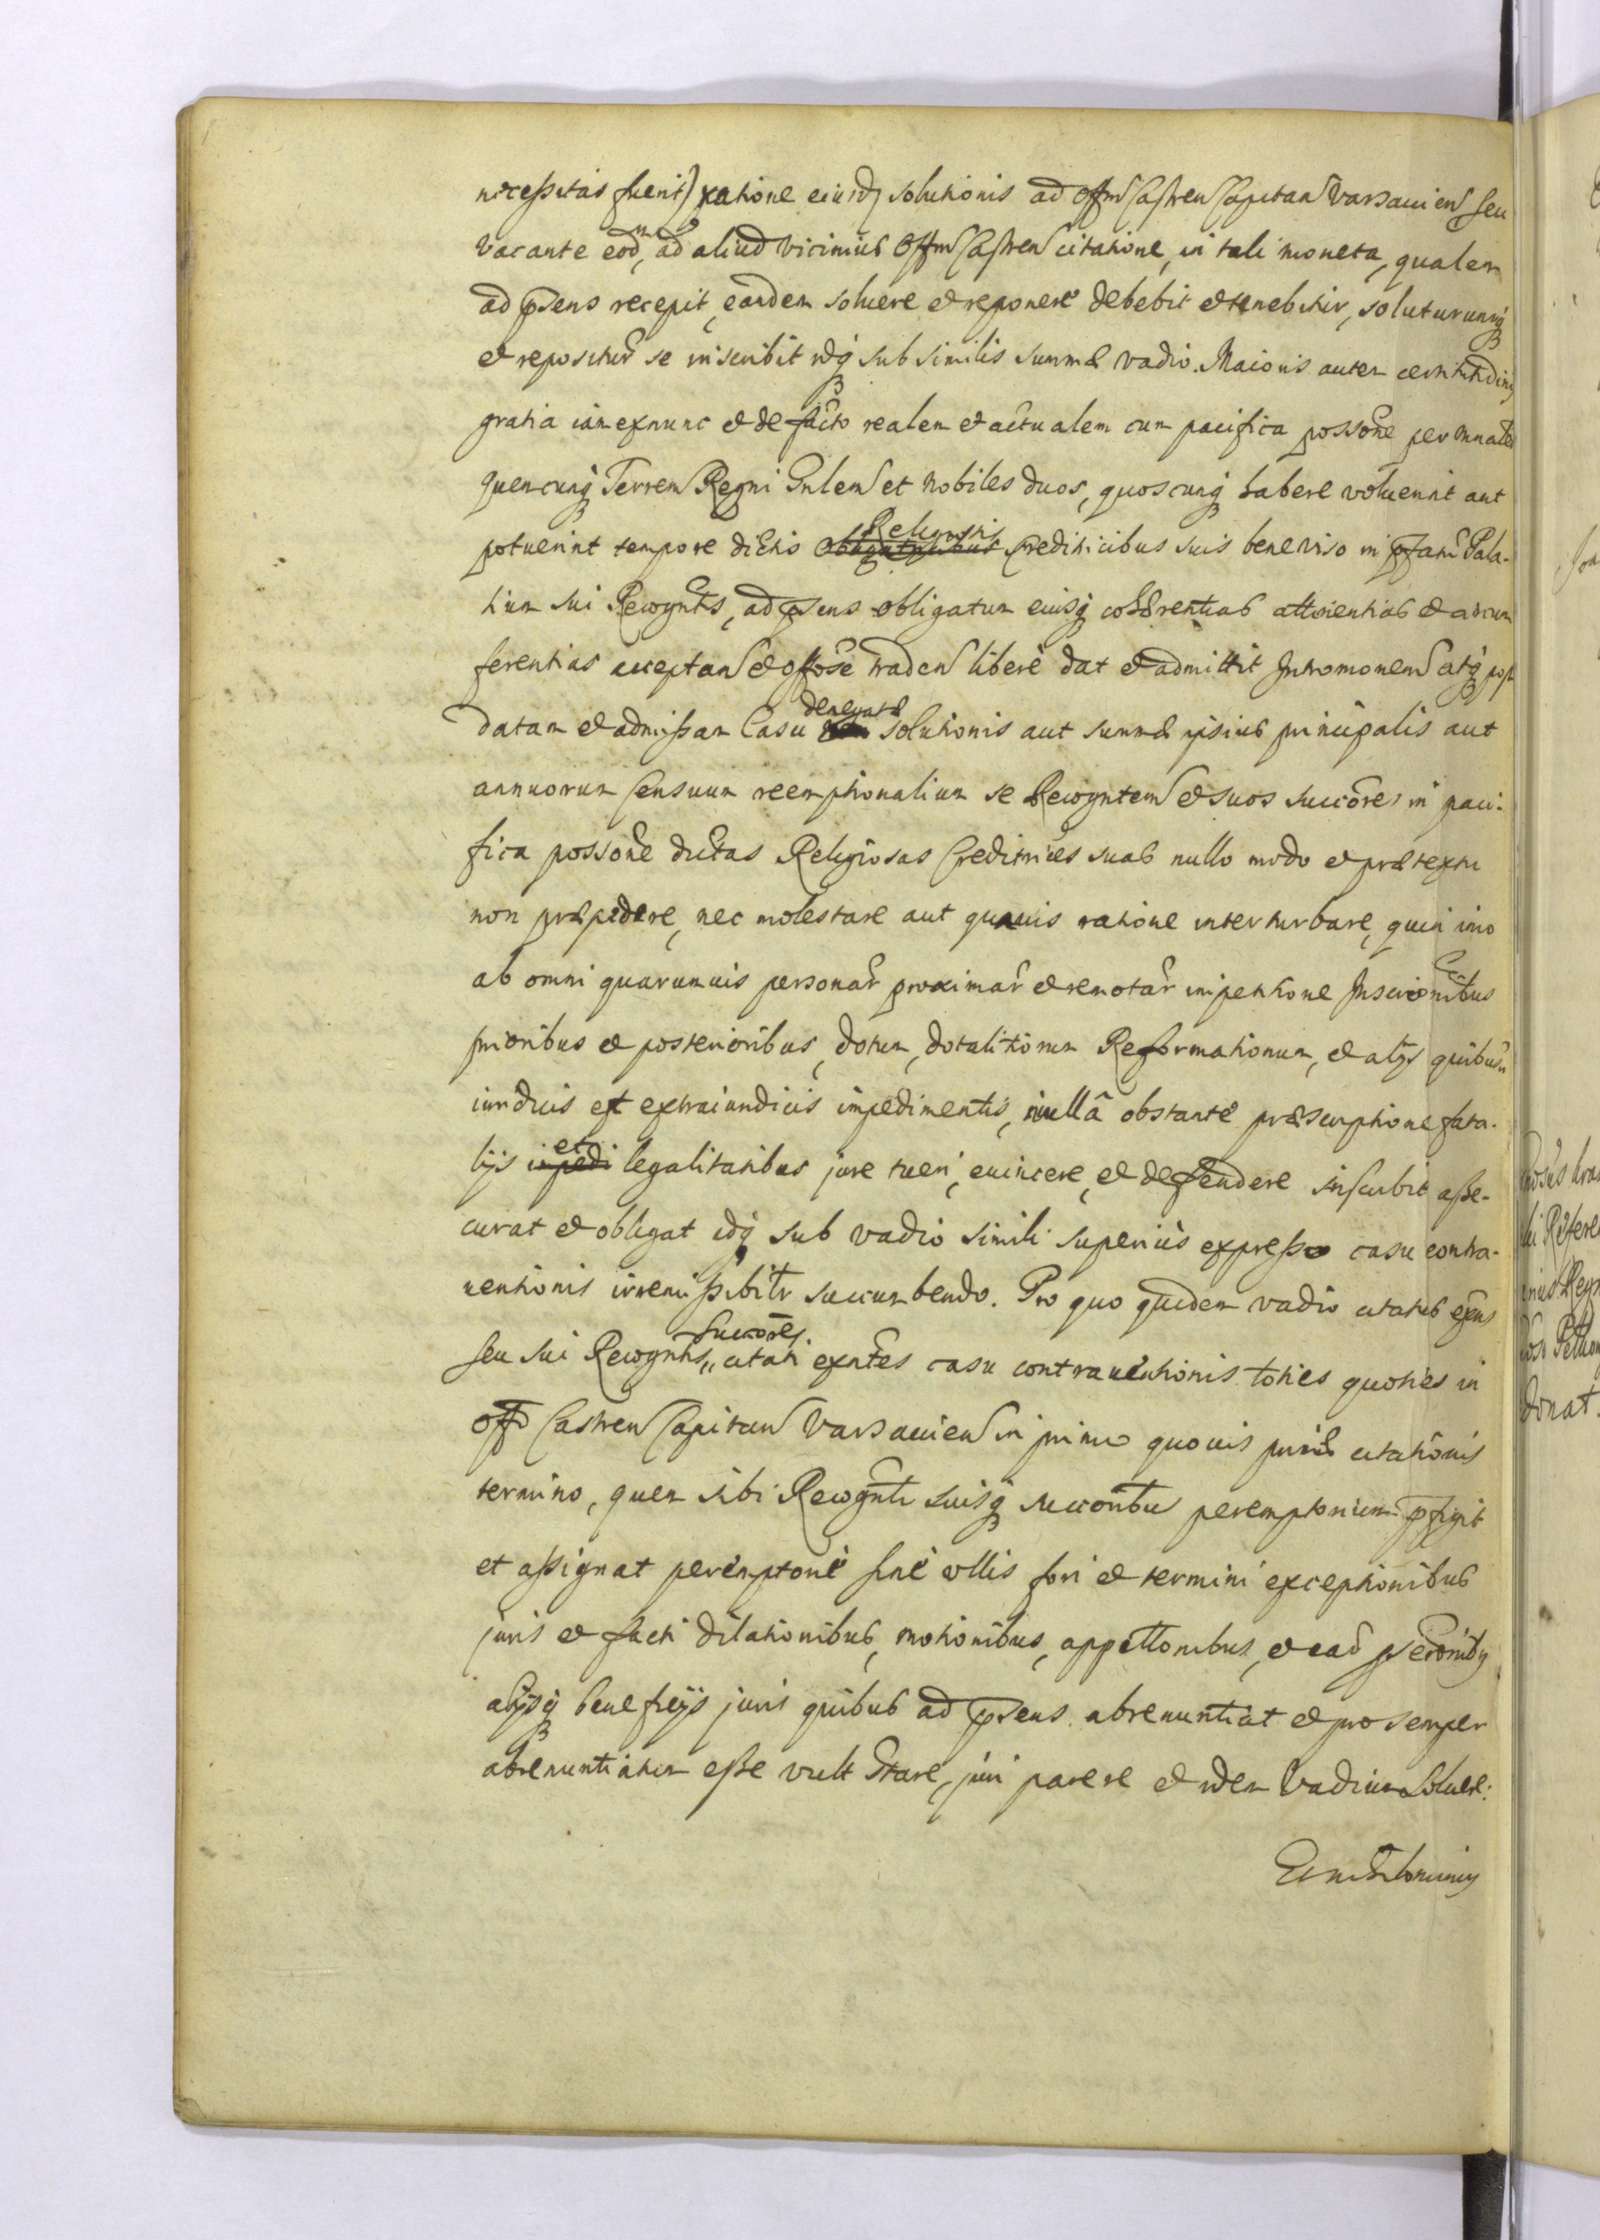 necessitas fuerit) ratione eiusdq solutionis ad Offm Castren Capitan Varsavien seu
vacante eodm, ad aliud vicinius Offm Castren citatione, in tali moneta, qualem
ad psens recepit, eandem soluere et reponere debebit et tenebitur, soluturumq
et repositur se inscribit idq sub similis summæ vadio. Maioris autem certitudinis
gratia iam exnunc et de facto realem et actualem cum pacifica possone per
quencunq Terren Regni Gnlem et Nobiles duos, quoscunq habere voluerint aut
potuerint tempore dictis Religiosis Creditricibus suis bene viso in pfatu Pala-
tium sui Recogntis, ad psens obligatum eiusq cohærentias attinentias et circum
ferentias acceptan et traden libere dat et admittit Intromonem atq post
datam et admissam Casu denegatæ solutionis aut summæ ipsius principalis aut
annuorum Censuum reemptionalium se Recogntem et suos succores in paci-
fica possone dictas Religiosas Creditrices suas nullo modo et prætextu
non præpedire, nec molestare aut quavis ratione interturbare, quin imo
ab omni quarumvis personar proximar et remotar impetitione Inscrionibus
prioribus et posterioribus, dotum, dotalitiorum Reformationum, et alijs quibusv
iuridicis et extraiuridicis impedimentis, nullâ obstante præscriptione fata-
lijs et legalitatibus jure tueri, evincere, et defendere inscribit asse-
curat et obligat idq sub vadio simili superius expresso casu contra-
ventionis irremissibiltr succumbendo. Pro quo quidem vadio citatus exns
seu sui Recogntis succores, citati exntes casu contraventionis toties quoties in
Offo Castren Capitan Varsavien in primo quovis citationis
termino, quem sibi Recognti suisq succoribus peremptorium pfigit
et assignat peremptorie sine ullis fori et termini exceptionibus
juris et facti dilationibus, motionibus, appellonibus, et ead psecronibq
alijsq beneficijs juris quibus ad psens abrenuntiat et pro semper
abrenuntiatum esse vult Stare, juri parere et idem Vadium soluere: